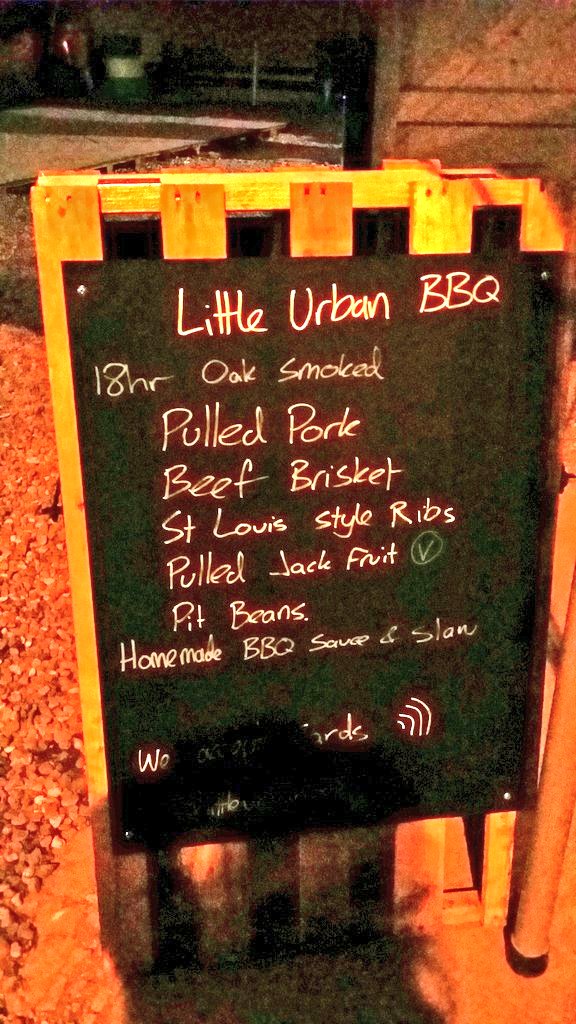 Little Urban BBQ
18hr Oak Smoked
Pulled Pork
Beef Brisket
St Louis style Ribs
Pulled Jack Fruit V
Pit Beans.
Homemade BBQ Sauce & Slaw
We accept Cards